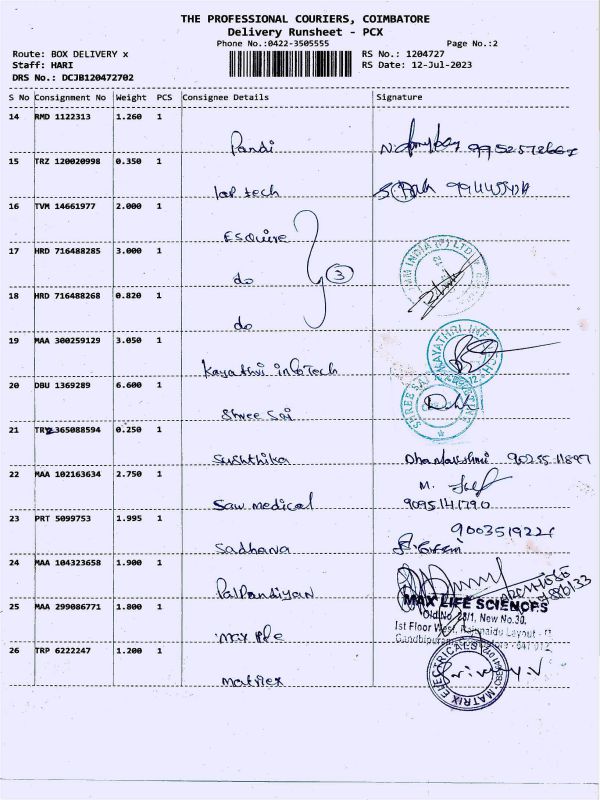 THE PROFESSIONAL COURIERS, COIMBATORE
Delivery Runsheet - PCX
Phone No.:0422-3505555 Page No.:2
Route: BOX DELIVERY x RS No.: 1204727
Staff: HARI RS Date: 12-Jul-2023
DRS No.: DCJB120472702
S No Consignment No Weight PCS Consignee Details Signature
14 RMD 1122313 1.260 1
Pandi
15 TRZ 120020998 0.350 1
tech
16 TVM 14661977 2.000 1
Esquire
17 HRD 716488285 3.000 1
do 3
18 HRD 716488268 0.820 1
do
19 MAA 300259129 3.050 1
Kayathri infoTech
20 DBU 1369289 6.600 1
Shree Sai
21 365088594 0.250 1
Sushthika Dhanalakshmi
22 MAA 102163634 2.750 1
M.
Saw medical
23 PRT 5099753 1.995 1
Sadhana
24 MAA 104323658 1.900 1
Palpandiyan
MAX LIFE SCIENCES
25 MAA 299086771 1.800 1
Old No. 28/1, New No.30,
1st Floor West, Layout
max life
26 TRP 6222247 1.200 1
MATRIX ELECTRICALS
Matriex